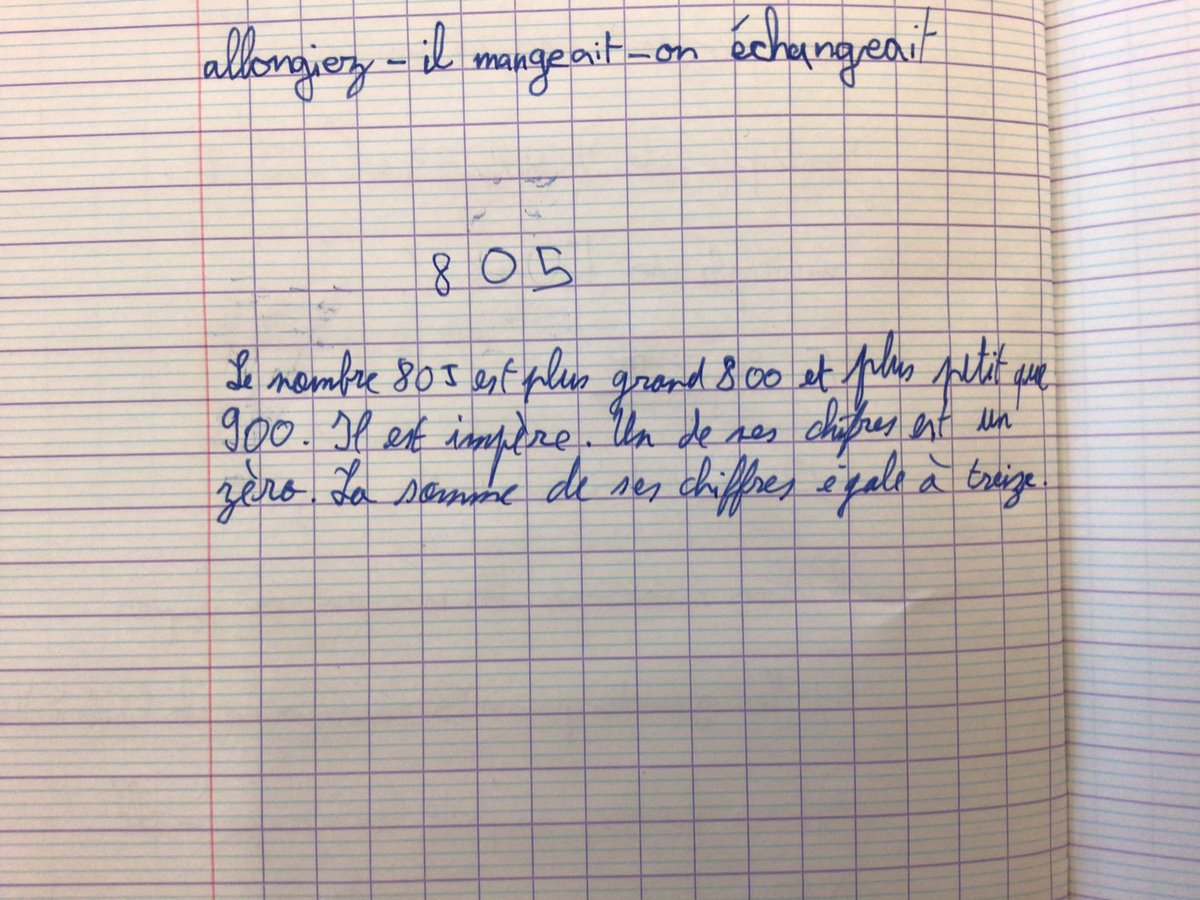 allongiez - il mangeait - on échangeait
8 0 5
Le nombre 805 est plus grand 800 et plus ptit que
900. Il est impère. Un de ses chiffres est un
zèro. La somme de ses chiffres égale à treize.